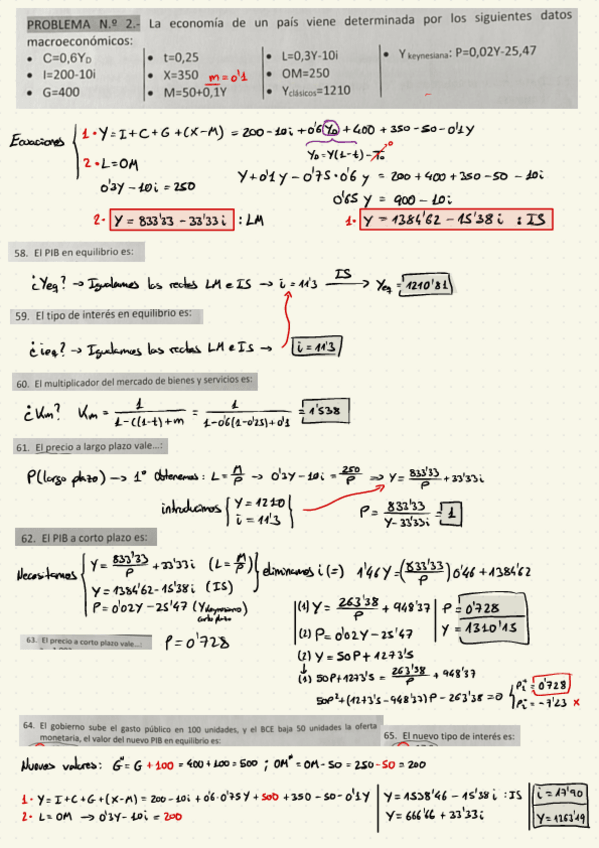 PROBLEMA N.º 2.- La economía de un país viene determinada por los siguientes datos
macroeconómicos:
• C=0,6Y_D • t=0,25 • L=0,3Y-10i • Y keynesiana: P=0,02Y-25,47
• I=200-10i • X=350 m=0'1 • OM=250
• G=400 • M=50+0,1Y • Yclásicos=1210
Ecuaciones
1· Y=I+C+G+(X-M) = 200-10i+0'6Y_D+400+350-50-0'1Y
Y_D=Y(1-t)-T₀ 0
2· L=OM
0'3Y-10i=250
Y+0'1Y-0'75·0'6y = 200+400+350-50-10i
0'65y = 900-10i
2· Y=833'33-33'33i : LM 1· Y=1384'62-15'38i : IS
58. El PIB en equilibrio es:
¿Yeq? → Igualamos las rectas LM e IS → i=11'3 IS → Yeq=1210'81
59. El tipo de interés en equilibrio es:
¿ieq? → Igualamos las rectas LM e IS → i=11'3
60. El multiplicador del mercado de bienes y servicios es:
¿Km? Km = 1/(1-c(1-t)+m) = 1/(1-0'6(1-0'25)+0'1) = 1'538
61. El precio a largo plazo vale...:
P(largo plazo) → 1º Obtenemos: L=M/P → 0'3Y-10i=250/P ⇒ Y=833'33/P+33'33i
introducimos { Y=1210
i=11'3
P=833'33/(Y-33'33i)=1
62. El PIB a corto plazo es:
Necesitamos
Y=833'33/P+33'33i (L=M/P)
Y=1384'62-15'38i (IS)
P=0'02Y-25'47 (Ykeynesiano corto plazo)
eliminamos i (=) 1'46Y=(833'33/P)0'46+1384'62
(1) Y=263'38/P+948'37
(2) P=0'02Y-25'47
P=0'728
Y=1310'15
63. El precio a corto plazo vale...:
P=0'728
(2) Y=50P+1273'5
↓
(1) 50P+1273'5=263'38/P+948'37
50P²+(1273'5-948'37)P-263'38=0
P₁*=0'728
P₂*=-7'23 x
64. El gobierno sube el gasto público en 100 unidades, y el BCE baja 50 unidades la oferta
monetaria, el valor del nuevo PIB en equilibrio es:
65. El nuevo tipo de interés es:
Nuevos valores: G*=G+100=400+100=500 ; OM*=OM-50=250-50=200
1· Y=I+C+G+(X-M)=200-10i+0'6·0'75Y+500+350-50-0'1Y
2· L=OM → 0'3Y-10i=200
Y=1538'46-15'38i : IS
Y=666'66+33'33i
i=17'90
Y=1263'19